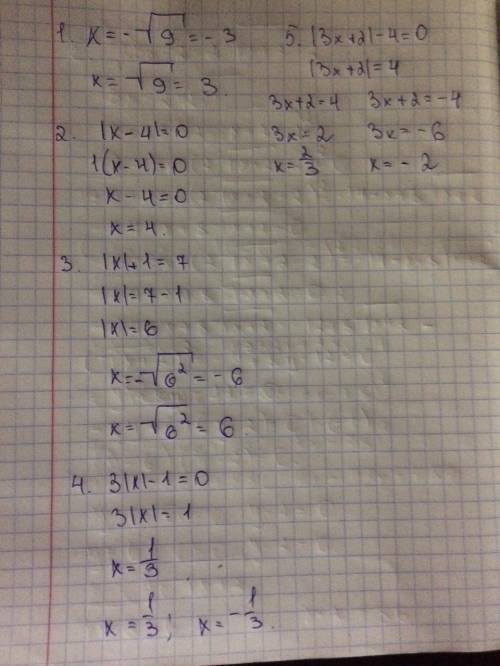 1. x = -√9 = -3
x = √9 = 3.
2. |x-4|=0
1(x-4)=0
x-4=0
x=4.
3. |x|+1=7
|x|=7-1
|x|=6
x=-√6² = -6
x=√6² = 6.
4. 3|x|-1=0
3|x|=1
x=1/3
x=1/3; x=-1/3.
5. |3x+2|-4=0
|3x+2|=4
3x+2=4 3x+2=-4
3x=2 3x=-6
x=2/3 x=-2